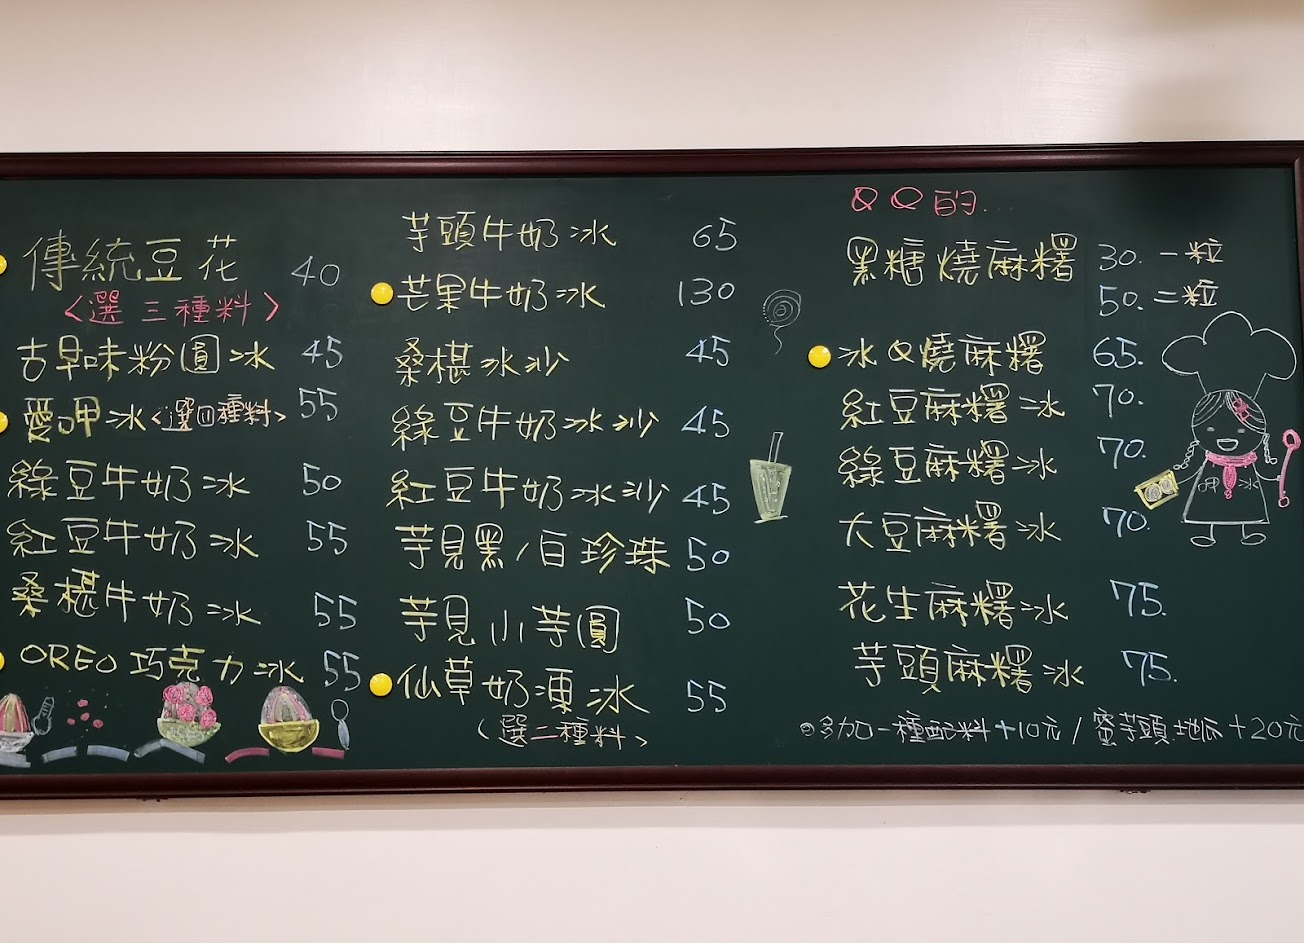 傳統豆花 40
<選三種料>
古早味粉圓冰 45
愛呷冰<選四種料> 55
綠豆牛奶冰 50
紅豆牛奶冰 55
桑椹牛奶冰 55
OREO巧克力冰 55
芋頭牛奶冰 65
芒果牛奶冰 130
桑椹冰沙 45
綠豆牛奶冰沙 45
紅豆牛奶冰沙 45
芋見黑/白珍珠 50
芋見小芋圓 50
仙草奶凍冰 55
<選二種料>
QQ的...
黑糖燒麻糬 30. 一粒
50. 二粒
冰Q燒麻糬 65.
紅豆麻糬冰 70.
綠豆麻糬冰 70.
大豆麻糬冰 70.
花生麻糬冰 75.
芋頭麻糬冰 75.
呷冰
多加一種配料+10元/蜜芋頭地瓜+20元